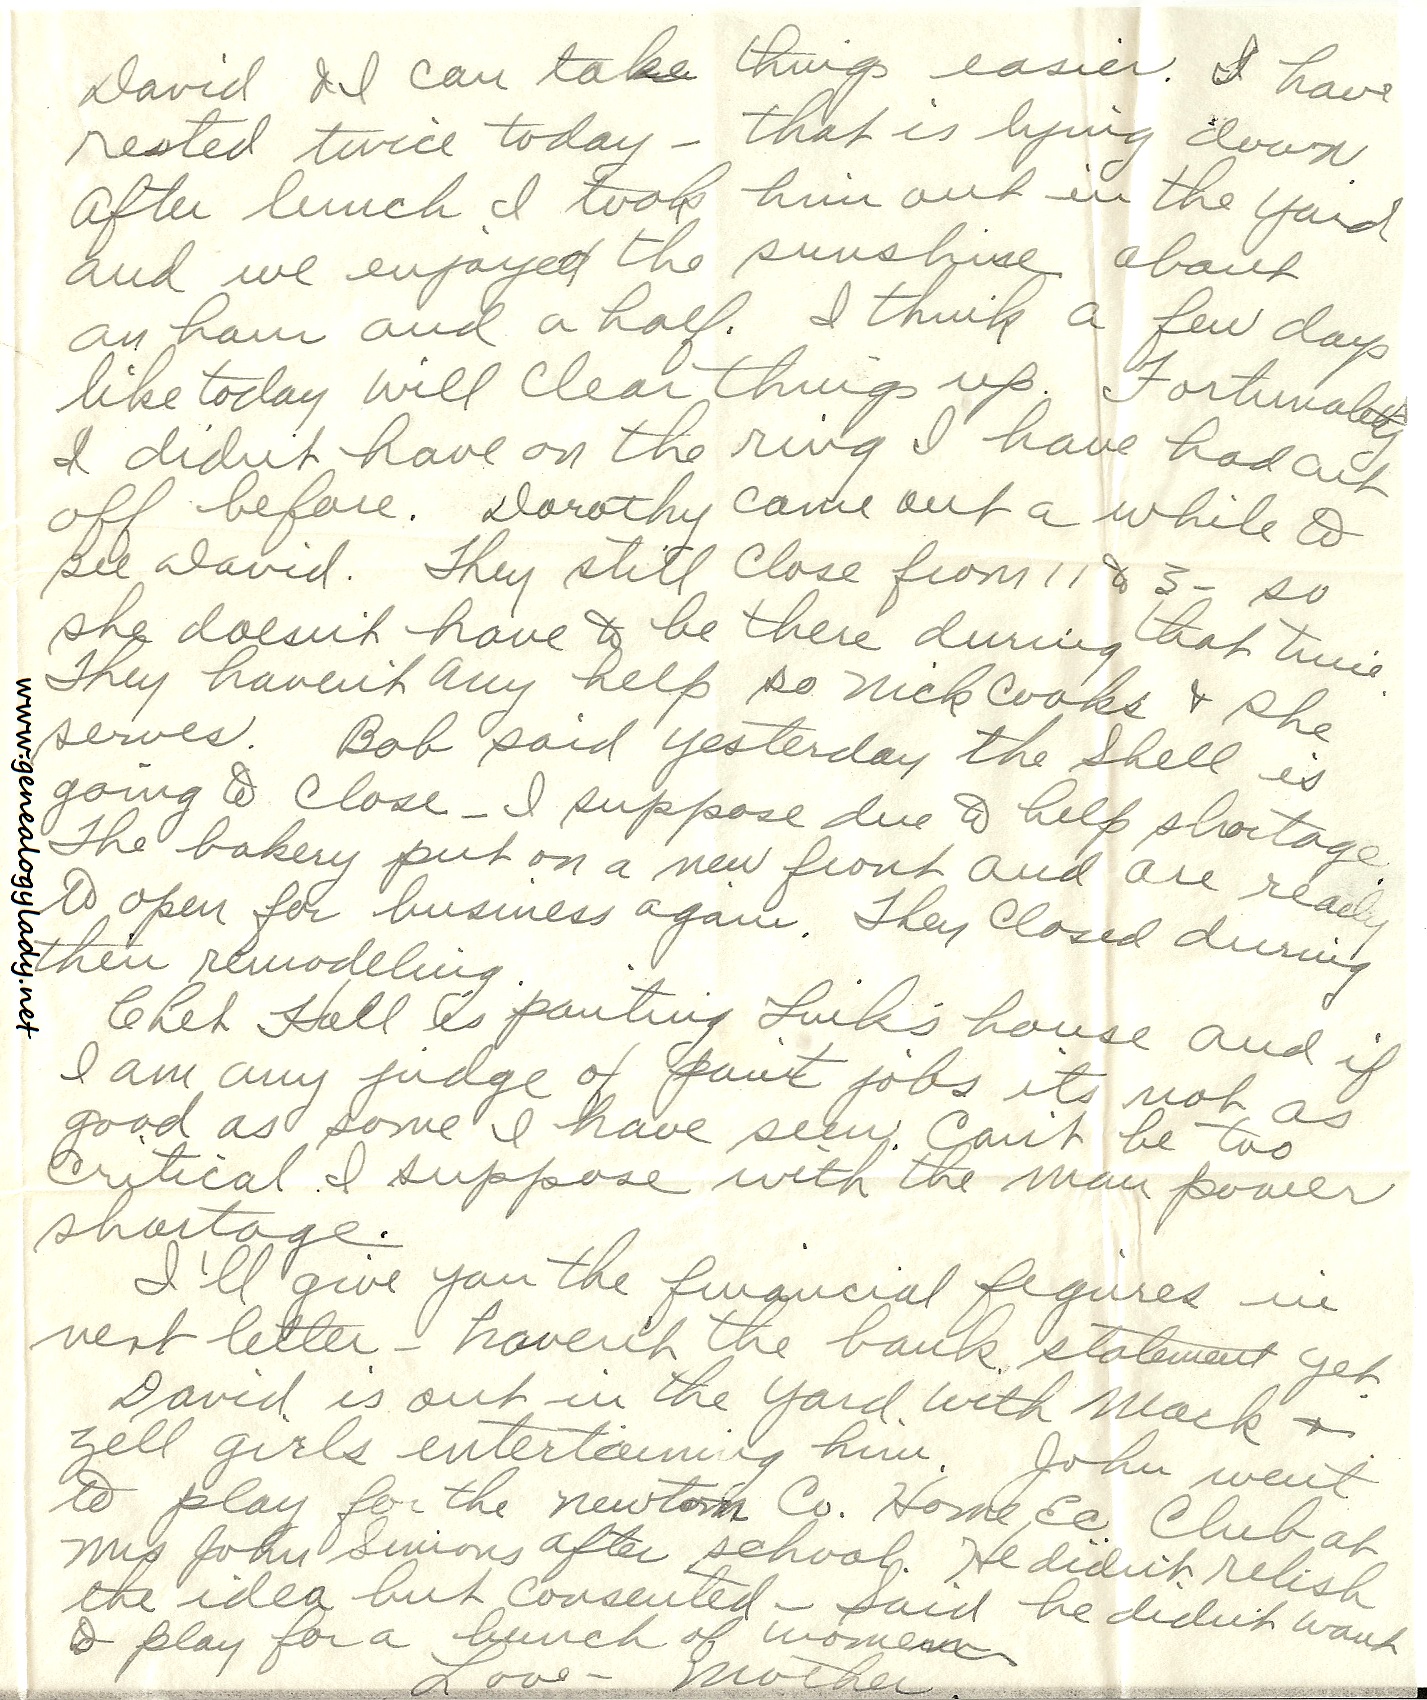 David & I can take things easier. I have
rested twice today – that is lying down
After lunch I took him out in the yard
and we enjoyed the sunshine about
an hour and a half. I think a few days
like today will clear things up. Fortunately
I didn't have on the ring I have had cut
off before. Dorothy came out a while to
see David. They still close from 11 to 3 – so
she doesn't have to be there during that time.
They haven't any help so Nick cooks & she
serves. Bob said yesterday the Shell is
going to close – I suppose due to help shortage.
The bakery put on a new front and are ready
to open for business again. They closed during
their remodeling.
Chet Hall is painting Luik's house and if
I am any judge of paint jobs its not as
good as some I have seen. Can't be too
critical I suppose with the man power
shortage.
I'll give you the financial figures in
next letter – haven't the bank statement yet.
David is out in the yard with Mack &
Zell girls entertaining him. John went
to play for the Newton Co. Home Ec Club at
Mrs John Simons after school. He didn't relish
the idea but consented – Said he didn't want
to play for a bunch of women
Love – Mother.
www.genealogylady.net